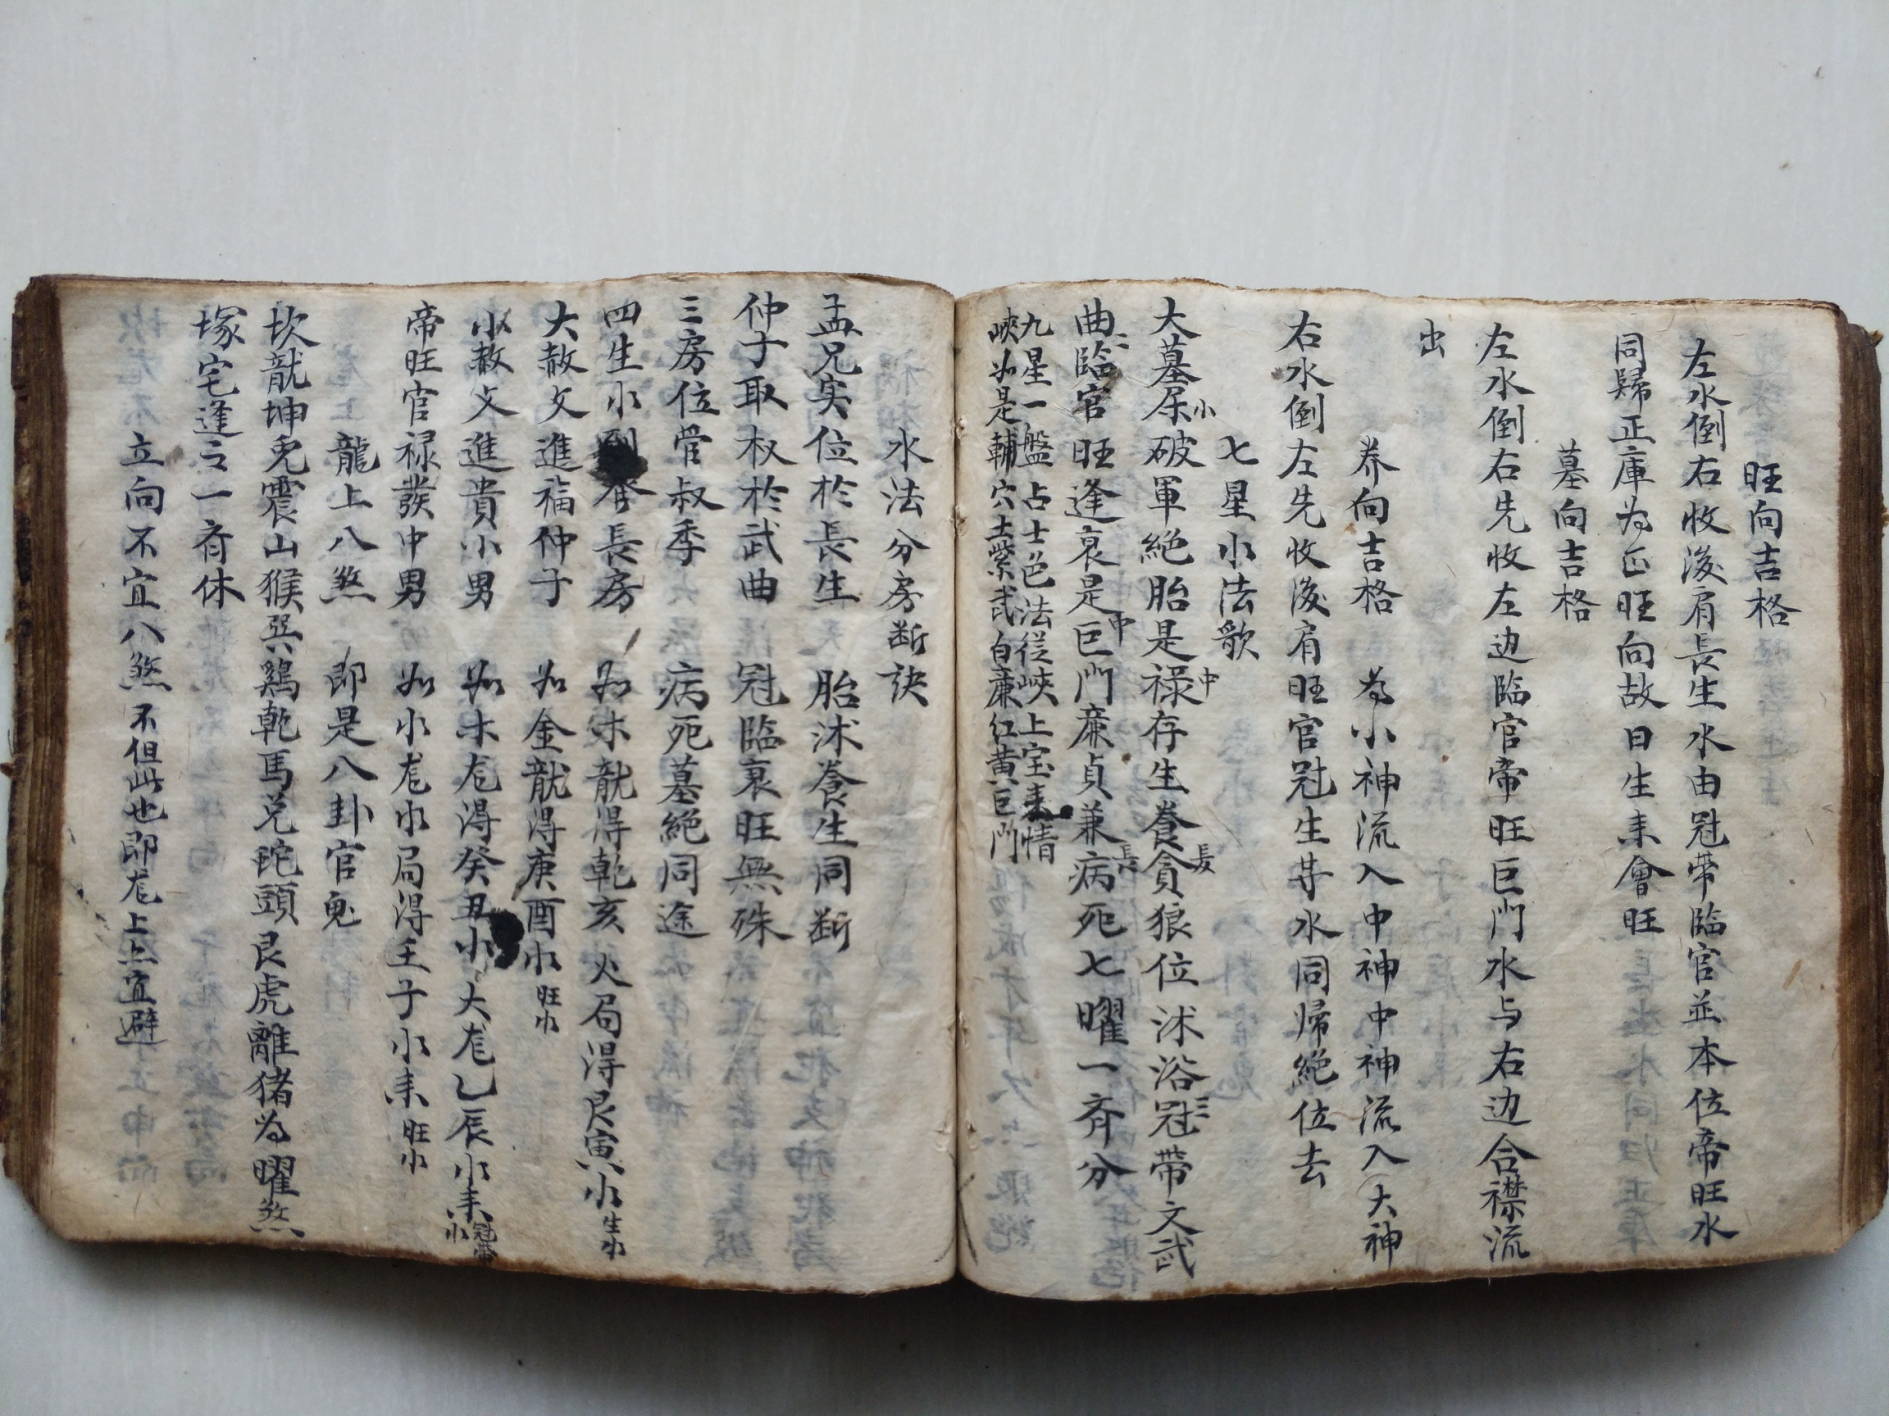 旺向吉格
左水倒右收後肩長生水由冠帶臨官並本位帝旺水
同歸正庫为正旺向故曰生来會旺
墓向吉格
左水倒右先收左边臨官帝旺巨门水与右边合襟流
出
养向吉格 為小神流入中神中神流入大神
右水倒左先收後肩旺官冠生其水同帰絶位去
七星水法歌
大墓原破軍絕胎是禄存生養貪狼位沭浴冠帶文武
小 中 長 三
曲臨官旺逢衰是巨门廉貞兼病死七曜一齐分
二 中 長
九星一盤占士色法従峽上宝来情
峽如是輔穴土紫武白廉红黄巨门
水法分房断訣
孟兄矣位於長生 胎沭養生同断
仲子取权於武曲 冠臨衰旺無殊
三房位管叔季 病死墓絕同途
四生水到發長房 如木龍得乾亥火局得艮寅水生水
大赦文進福仲子 如金龍得庚酉水旺水
小赦文進貴小男 如木龙得癸丑水大龙乙辰水来冠帶水
帝旺官禄發中男 如水龙水局得壬子水来旺水
龍上八煞 即是八卦官鬼
坎龍坤兎震山猴巽鷄乾馬兑蛇頭艮虎離猪为曜煞
塚宅逢之一齐休
立向不宜八煞不但此也即龙上上宜避